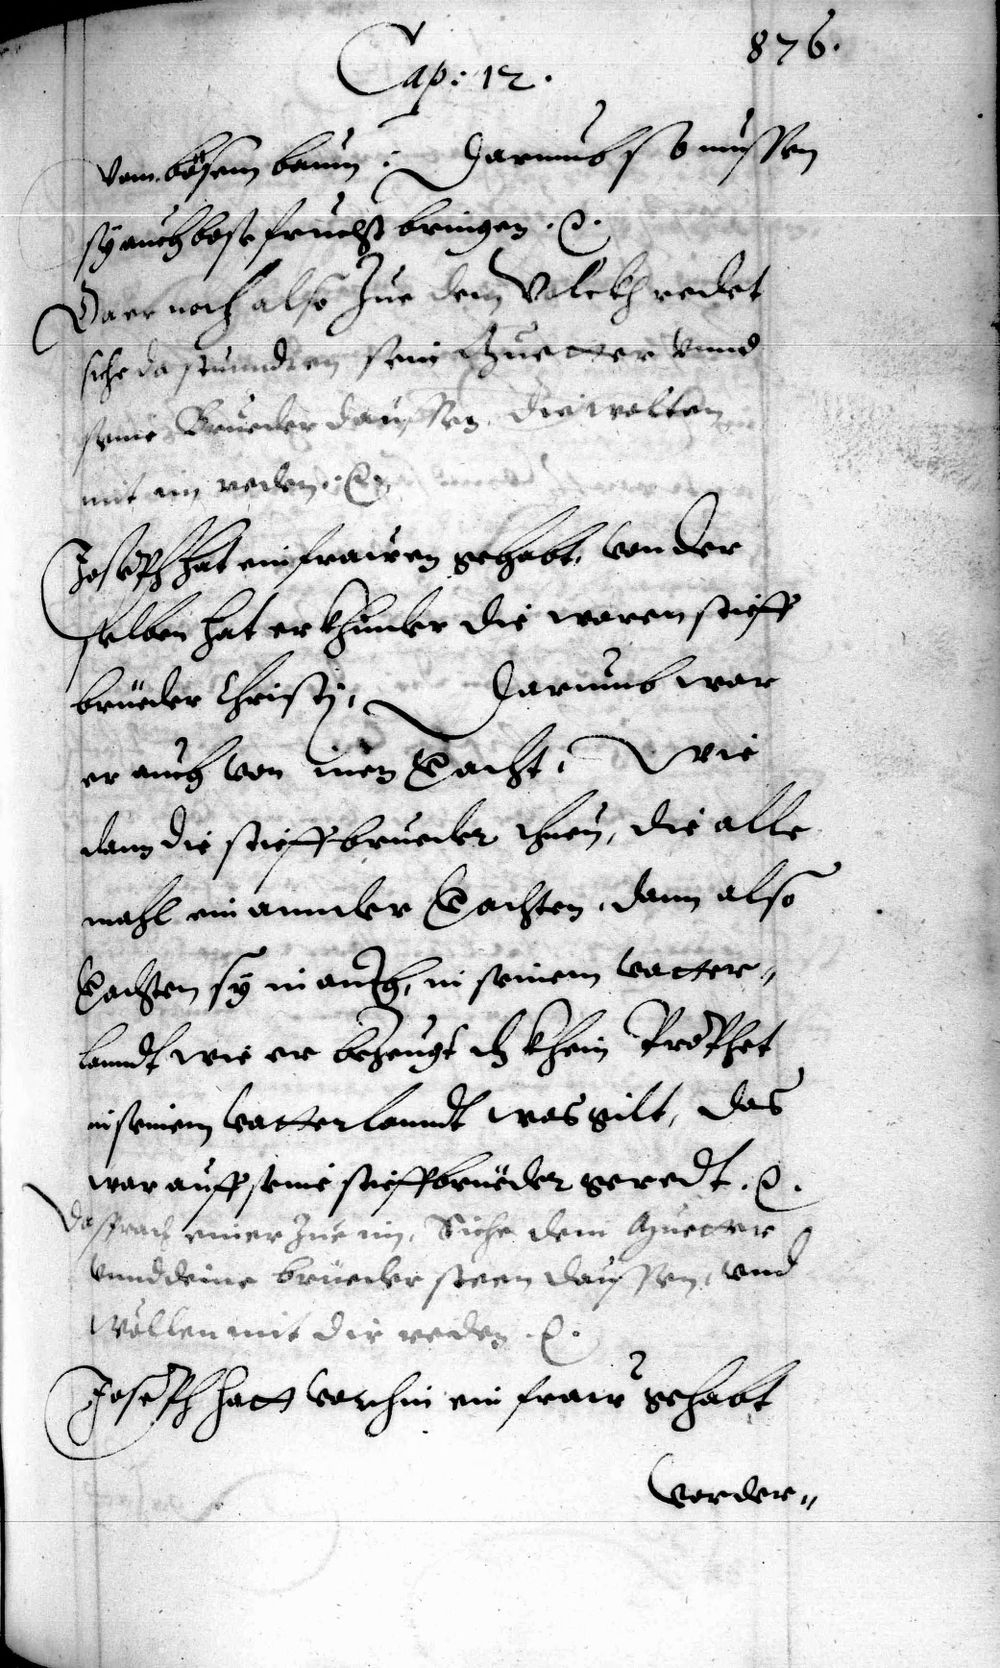 876.
Cap: 12.
vom bösem baum: Darumb so müssen
sÿ auch böse frucht bringen .&.
Da er noch also Zue dem Volckh redet
sihe da stuundten sein Muetter vnnd
seine Brüeder daussen, die wolten
mit im reden .&.
Joseph hat ein frawen gehabt, von der
selben hat er khinder die waren stieff
brüeder Christj, Darumb war
er auch von inen veracht, Wie
dann die stieffbrueder thuen, die alle
mahl ein annder verachten, dann also
verachten sÿ in auch, in seinem vatter-
lanndt wie er bezeugt dz khein Prophet
in seinem vatterlanndt was gilt, das
war auff seine stieffbrüeder geredt .&.
Da sprach einer Zue im, Sihe dein Muetter
vnnd deine brüeder steen daussen, vnd
wöllen mit dir reden .&.
Joseph hatt vorhin ein fraw gehabt
vor der-